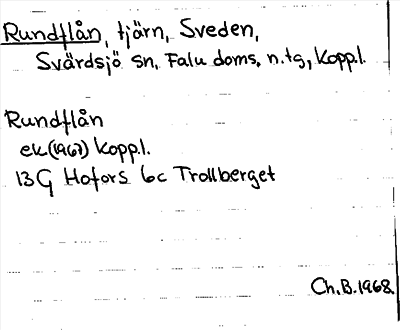 Rundflån, tjärn, Sveden,
Svärdsjö sn, Falu doms. n. tg, Kopp.l.
Rundflån
ek(1967) Kopp.l.
13G Hofors 6c Trollberget
Ch.B.1968.